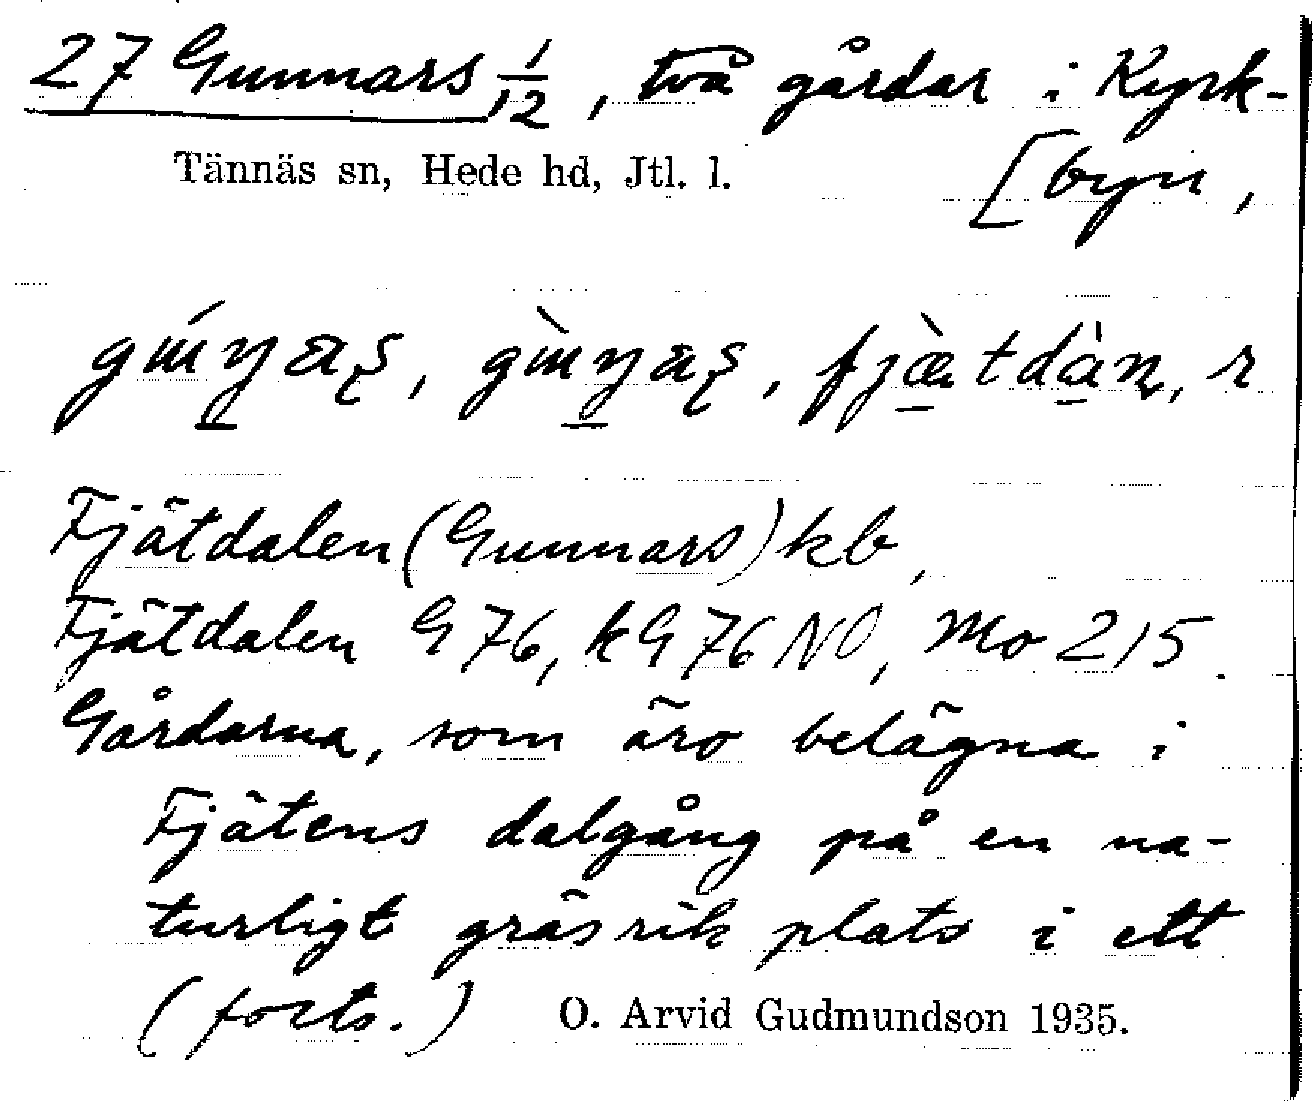 27 Gunnars 1/12, två gårdar i Kyrk-
[byn,
Tännäs sn, Hede hd, Jtl. l.
Fjätdalen (Gunnars) kb,
Fjätdalen G 76, kG 76 NO, Mo 215.
Gårdarna, som äro belägna i
Fjätens dalgång på en na-
turligt gräsrik plats i ett
(forts.) O. Arvid Gudmundson 1935.